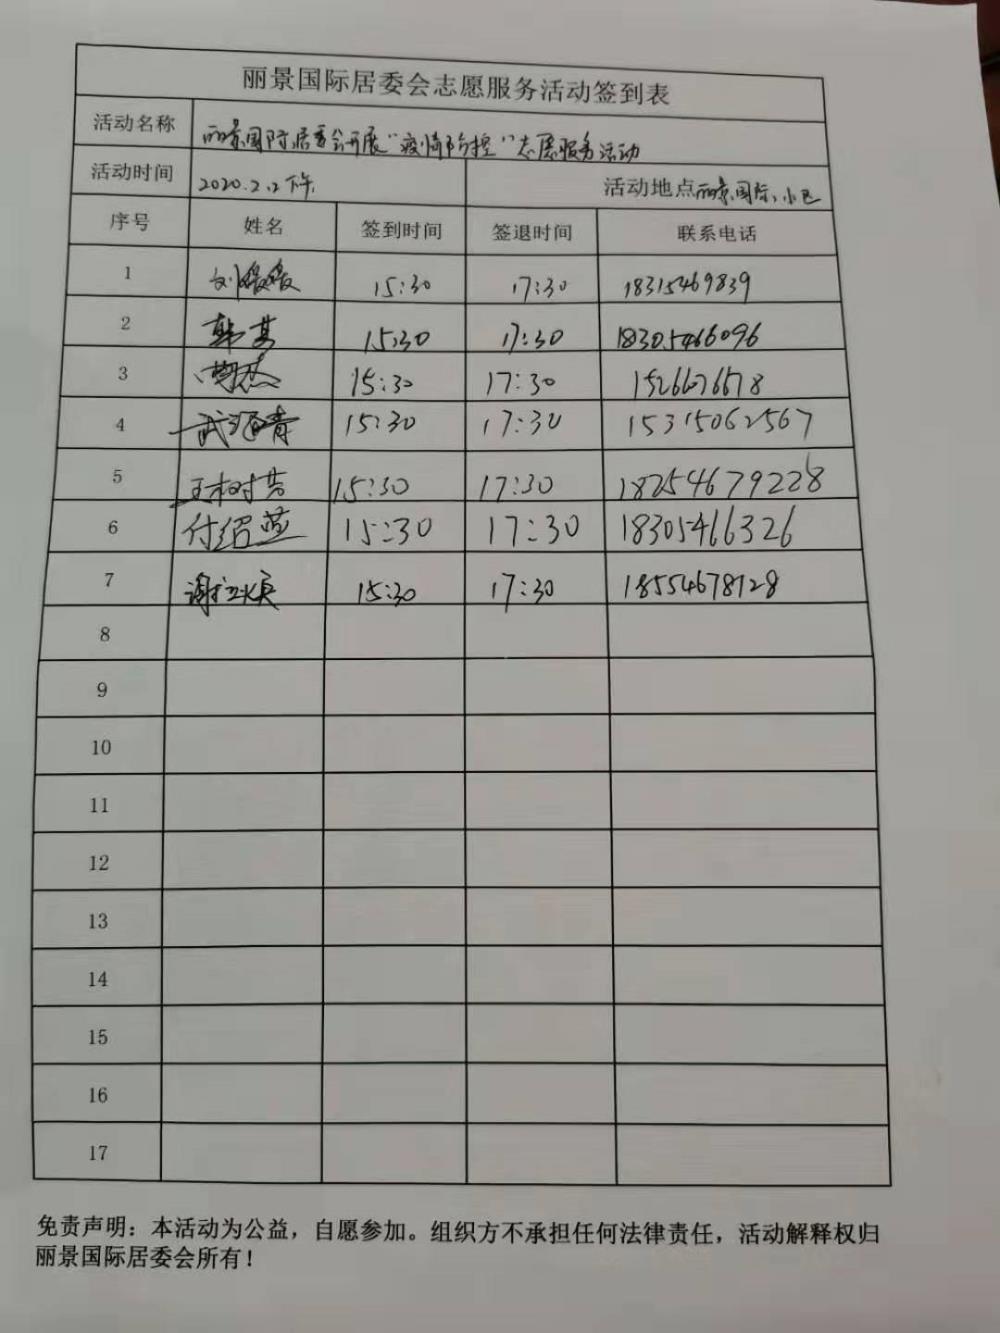 丽景国际居委会志愿服务活动签到表
活动名称 丽景国际居委会开展“疫情防控”志愿服务活动
活动时间 2020.2.2下午 活动地点 丽景国际小区
序号 姓名 签到时间 签退时间 联系电话
1 刘媛媛 15:30 17:30 18315469839
2 韩其 15:30 17:30 18305466096
3 15:30 17:30
4 15:30 17:30 15315062567
5 王树芸 15:30 17:30 18254679228
6 付绍蓝 15:30 17:30 18305466326
7 15:30 17:30 18554678128
8
9
10
11
12
13
14
15
16
17
免责声明：本活动为公益，自愿参加。组织方不承担任何法律责任，活动解释权归
丽景国际居委会所有！